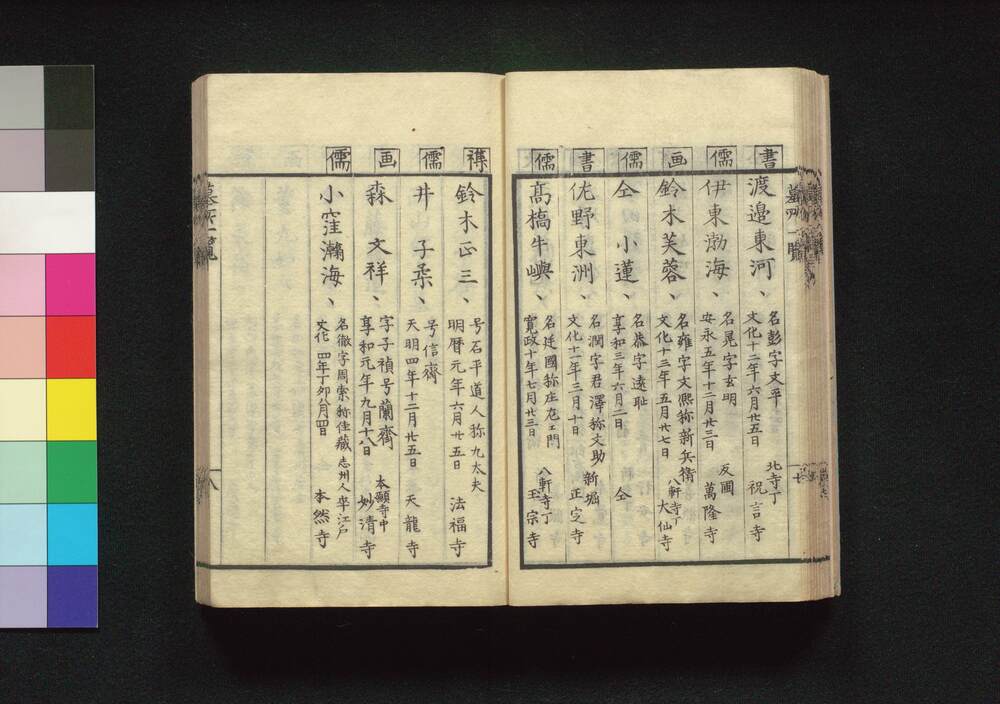 書
渡邉東河、
名彭字文平
文化十二年六月廿五日
北寺丁
祝言寺
儒
伊東渤海、
名晃字玄明
安永五年十二月廿三日
反圃
萬隆寺
画
鈴木芙蓉、
名雍字文熈称新兵衛
文化十三年五月廿七日
八軒寺丁
大仙寺
儒
仝 小蓮、
名恭字遠耻
享和三年六月二日
仝
書
佐野東洲、
名潤字君澤称文助
文化十一年三月十日
新堀
正定寺
儒
髙橋牛嶼、
名廷國称庄左ヱ門
寛政十年七月廿三日
八軒寺丁
玉宗寺
墓所一覧
七
禅
鈴木正三、
号石平道人称九太夫
明暦元年六月廿五日
法福寺
儒
井 子柔、
号信齋
天明四年十二月廿五日
天龍寺
画
森 文祥、
字子禎号蘭齋
享和元年九月十八日
本願寺中
妙清寺
儒
小窪瀚海、
名徹字周索称佳藏志州人卒江戸
文化四年丁卯八月四日
本然寺
墓所一覧
八